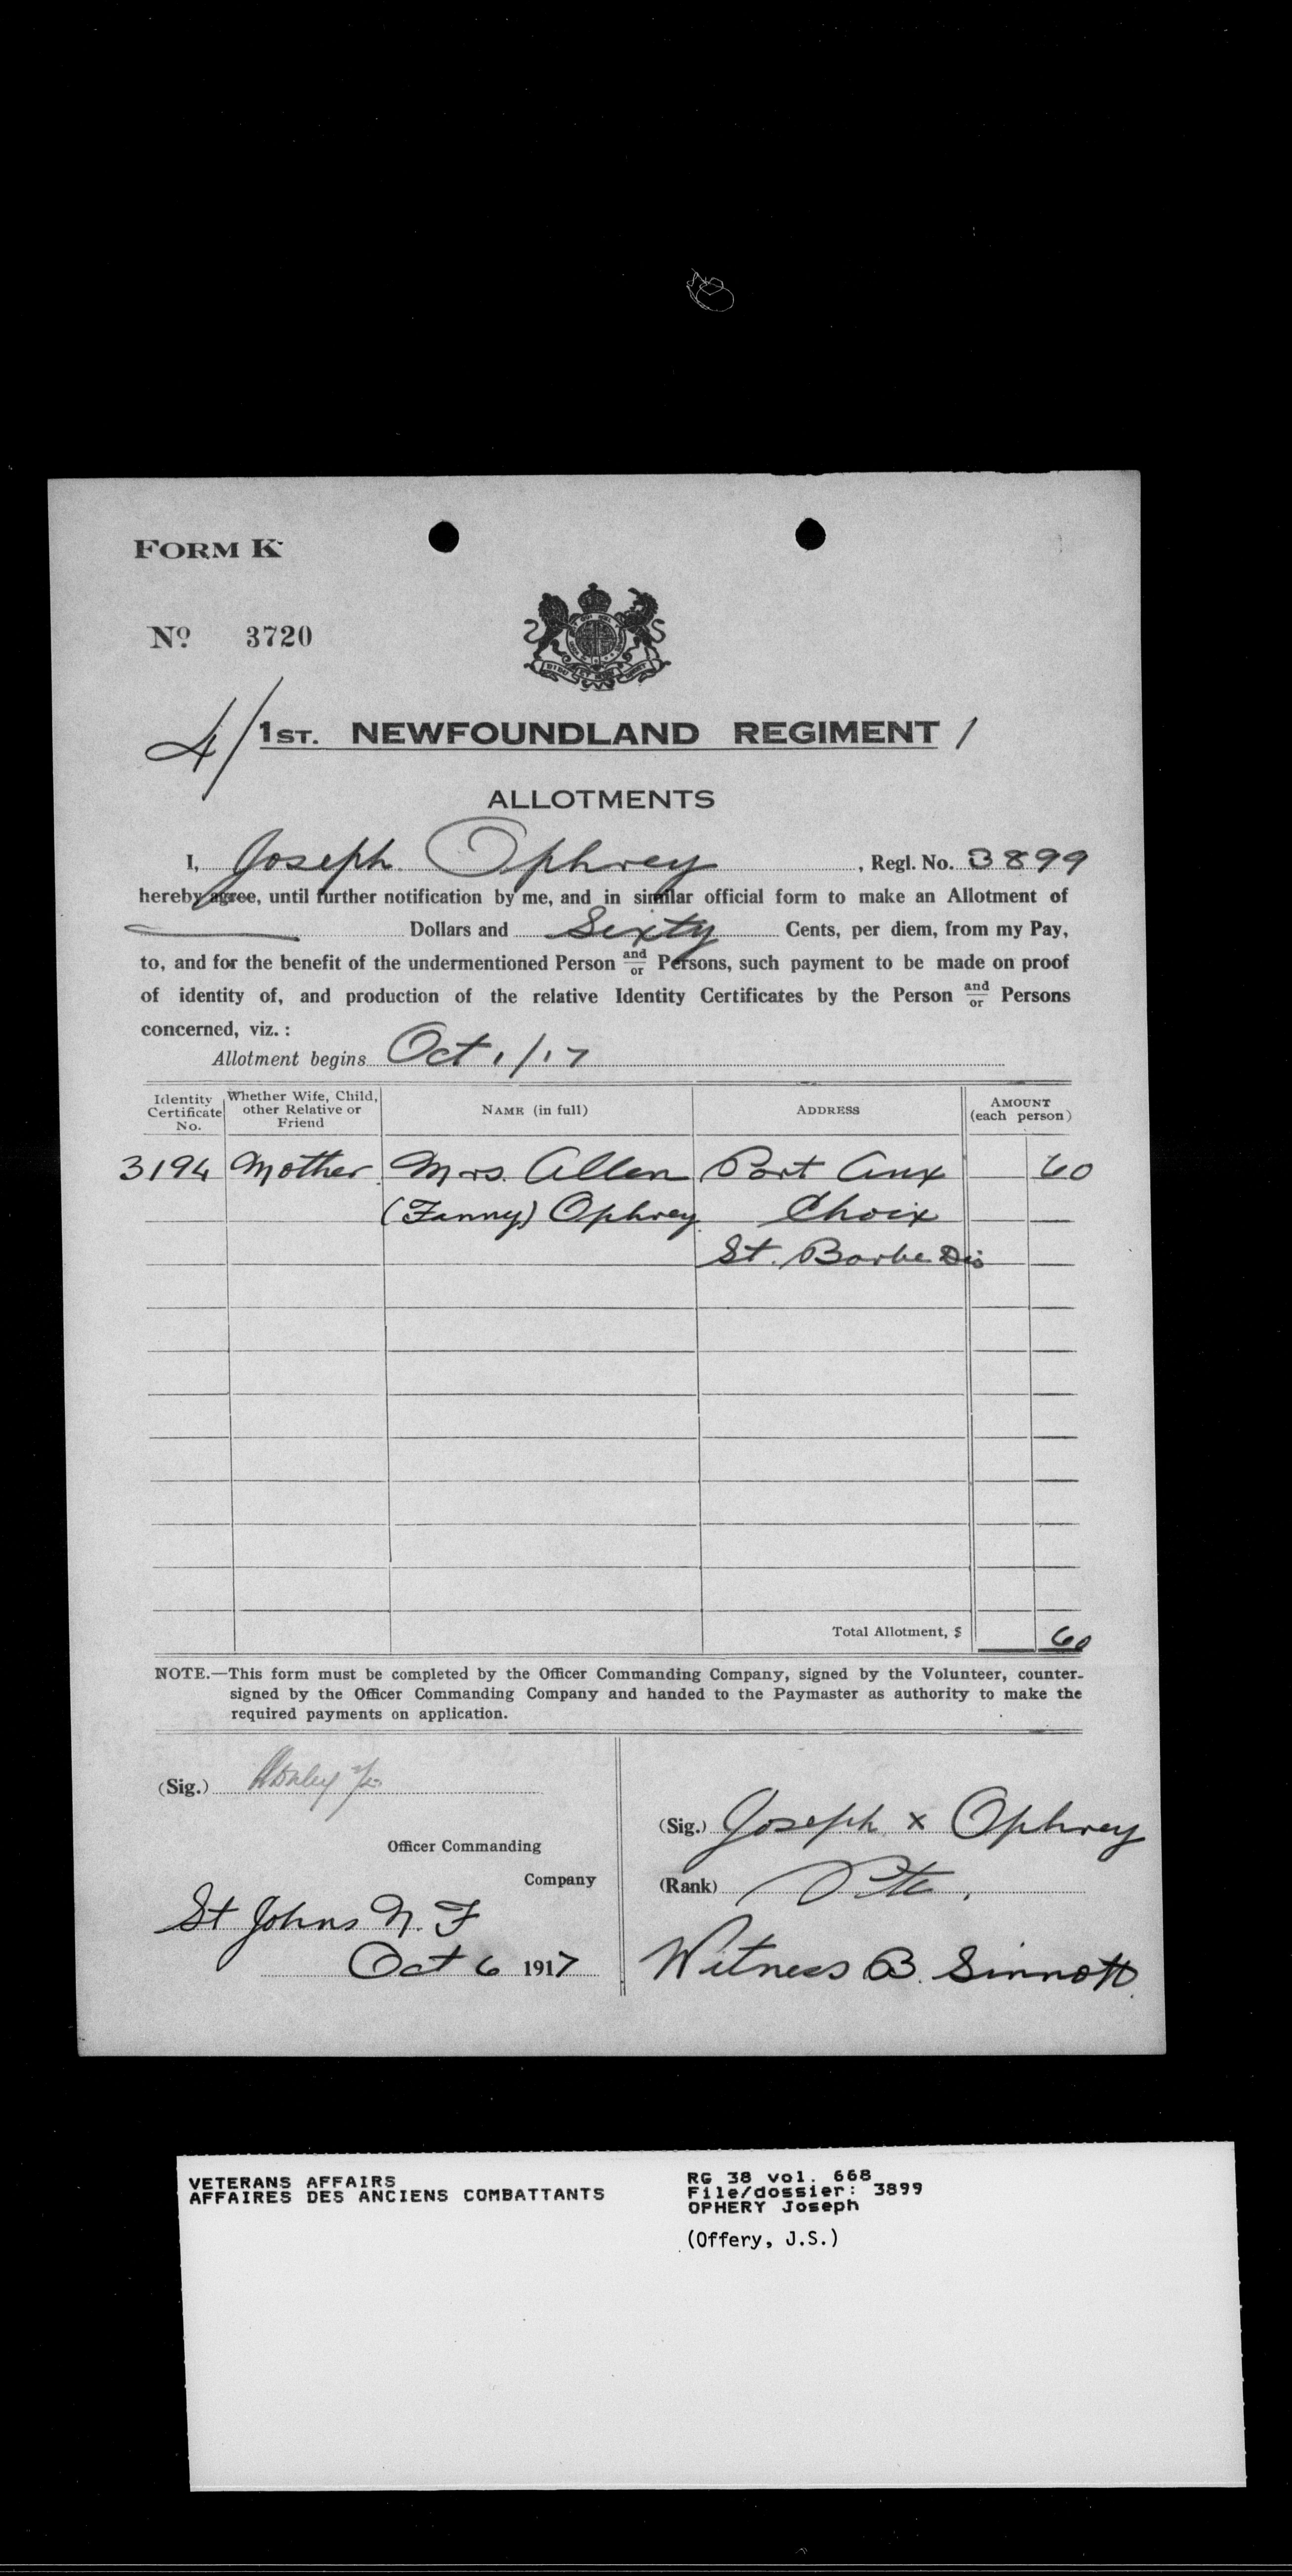 FORM K
No 3720
4/ 1ST. NEWFOUNDLAND REGIMENT /
ALLOTMENTS
I, Joseph Ophrey, Regl. No. 3899
hereby agree, until further notification by me, and in similar official form to make an Allotment of
Dollars and Sixty Cents, per diem, from my Pay,
to, and for the benefit of the undermentioned Person and/or Persons, such payment to be made on proof
of identity of, and production of the relative Identity Certificates by the Person and/or Persons
concerned, viz. :
Allotment begins Oct 1/17
Identity Certificate No. Whether Wife, Child, other Relative or Friend NAME (in full) ADDRESS AMOUNT (each person)
3194 Mother Mrs. Allen Port Aux 60
(Fanny) Ophrey Choix
St. Barbe Dis
Total Allotment, $ 60
NOTE.—This form must be completed by the Officer Commanding Company, signed by the Volunteer, counter-
signed by the Officer Commanding Company and handed to the Paymaster as authority to make the
required payments on application.
(Sig.)
Officer Commanding
Company
St Johns N. F
Oct 6 1917
(Sig.) Joseph x Ophrey
(Rank) Pte.
Witness B. Sinnott.
VETERANS AFFAIRS
AFFAIRES DES ANCIENS COMBATTANTS
RG 38 vol. 668
File/dossier: 3899
OPHERY Joseph
(Offery, J.S.)